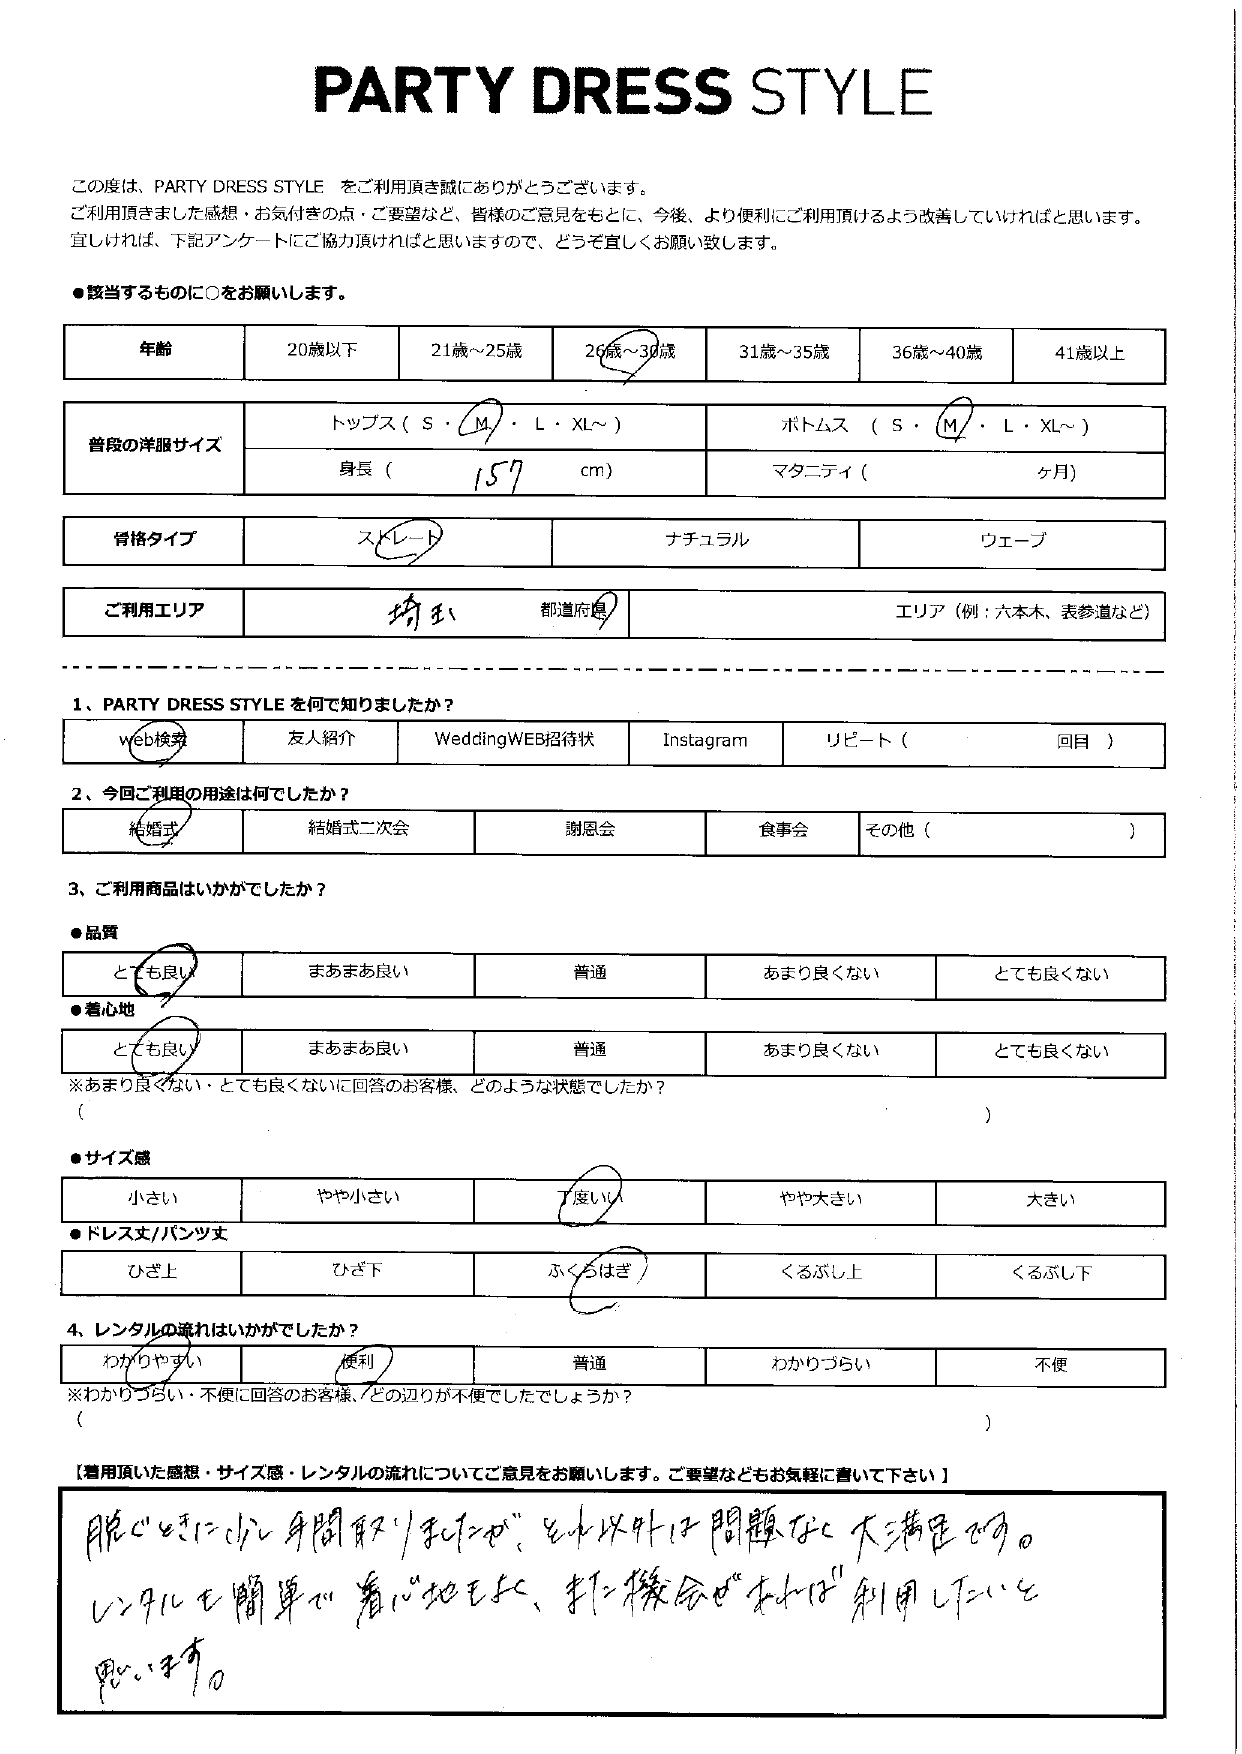 PARTY DRESS STYLE
この度は、PARTY DRESS STYLE をご利用頂き誠にありがとうございます。
ご利用頂きました感想・お気付きの点・ご要望など、皆様のご意見をもとに、今後、より便利にご利用頂けるよう改善していければと思います。
宜しければ、下記アンケートにご協力頂ければと思いますので、どうぞ宜しくお願い致します。
●該当するものに○をお願いします。
年齢 20歳以下 21歳～25歳 26歳～30歳 31歳～35歳 36歳～40歳 41歳以上
普段の洋服サイズ トップス ( S ・ M ・ L ・ XL～ ) ボトムス ( S ・ M ・ L ・ XL～ )
身長 ( 157 cm) マタニティ ( ヶ月)
骨格タイプ ストレート ナチュラル ウェーブ
ご利用エリア 埼玉 都道府県 エリア (例：六本木、表参道など)
1、PARTY DRESS STYLE を何で知りましたか？
web検索 友人紹介 WeddingWEB招待状 Instagram リピート ( 回目 )
2、今回ご利用の用途は何でしたか？
結婚式 結婚式二次会 謝恩会 食事会 その他 ( )
3、ご利用商品はいかがでしたか？
●品質
とても良い まあまあ良い 普通 あまり良くない とても良くない
●着心地
とても良い まあまあ良い 普通 あまり良くない とても良くない
※あまり良くない・とても良くないに回答のお客様、どのような状態でしたか？
( )
●サイズ感
小さい やや小さい 丁度いい やや大きい 大きい
●ドレス丈/パンツ丈
ひざ上 ひざ下 ふくらはぎ くるぶし上 くるぶし下
4、レンタルの流れはいかがでしたか？
わかりやすい 便利 普通 わかりづらい 不便
※わかりづらい・不便に回答のお客様、どの辺りが不便でしたでしょうか？
( )
【着用頂いた感想・サイズ感・レンタルの流れについてご意見をお願いします。ご要望などもお気軽に書いて下さい 】
脱ぐときに少し手間取りましたが、それ以外は問題なく大満足です。
レンタルも簡単で着心地もよく、また機会があれば利用したいと
思います。